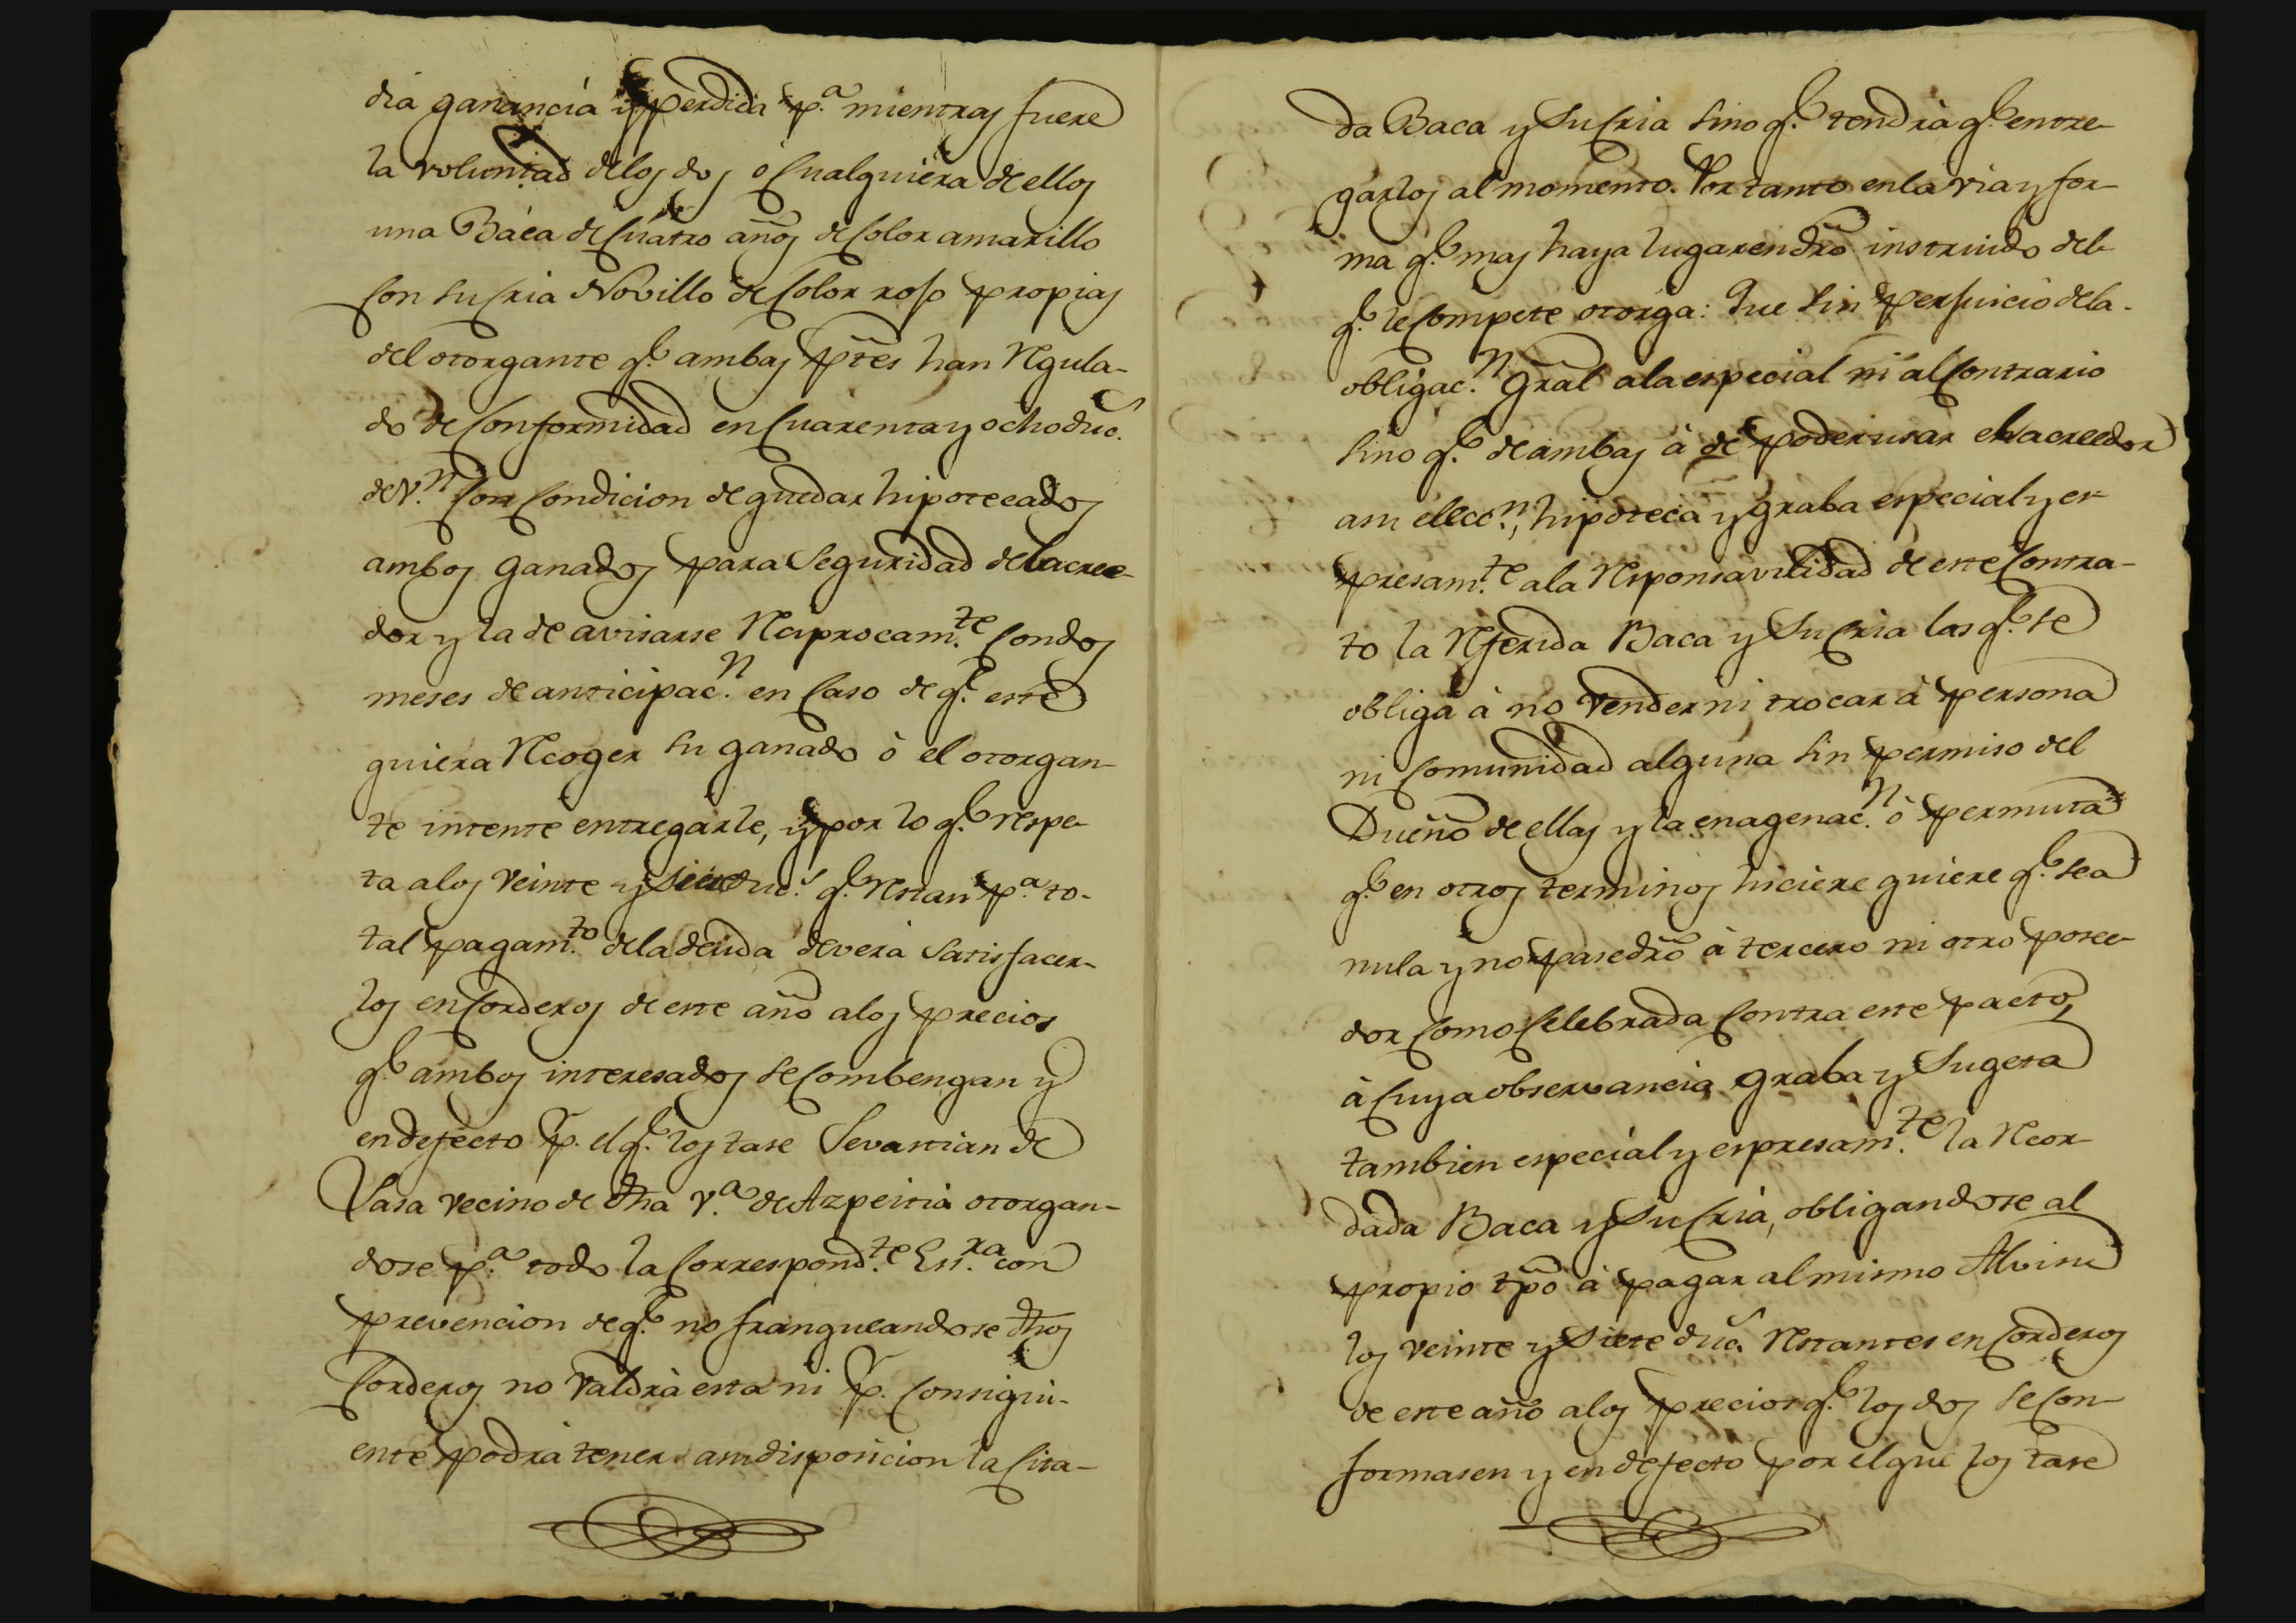 dia ganancia y perdida p.ª mientras fuere
la voluntad delos dos ó Cualquiera de ellos
una Baca de Cuatro años de Color amarillo
Con su Cria Novillo de Color roso propias
del otorgante q.e ambas ptes han Regula-
do de Conformidad en Cuarenta y ocho duc.s
de V.n Con Condicion de quedar hipotecados
ambos Ganados para Seguridad del acree-
dor y la de avisarse Reciprocam.te Con dos
meses de anticipac.n en Caso de q.e este
quiera Recoger su ganado ò el otorgan-
te intente entregarle, y por lo q.e respe-
ta alos veinte y siete duc.s q.e Restan p.ª to-
tal pagam.to dela deuda deverà Satisfacer-
los en Corderos de este año alos precios
q.e ambos interesados se Combengan y
en defecto p.r el q.e los tase Sevastian de
Lasa vecino de dha V.ª de Azpeitia otorgan-
dose p.ª todo la Correspond.te Ess.ra con
prevencion de q.e no franqueandose dhos
Corderos no Valdrà esta ni p.r Consigui-
ente podrà tener asu disposicion la Cita-
da Baca y Su Cria Sino q.e tendrà q.e entre-
garlos al momento. Por tanto en la via y for-
ma q.e mas haya lugar en dro instruido del
q.e le Compete otorga: Que Sin perjuicio dela
obligac.n Gral ala especial ni al Contrario
Sino q.e de ambas à de poder usar el acreedor
asu elecc.n, hipoteca y graba especial y es-
presam.te ala Responsavilidad de este Contra-
to la Referida Baca y Su Cria las q.e se
obliga à no vender ni trocar à persona
ni Comunidad alguna Sin permiso del
Dueño de ellas y la enagenac.n ò permuta
q.e en otros terminos hiciere quiere q.e sea
nula y no pase dro à tercero ni otro posee-
dor Como Celebrada Contra este pacto,
à Cuya observancia graba y Sugeta
tambien especial y espresam.te la Recor-
dada Baca y Su Cria, obligandose al
propio tpo à pagar al mismo Alvisu
los veinte y Siete duc.s Restantes en Corderos
de este año alos precios q.e los dos se Con-
formasen y en defecto por el que los tase